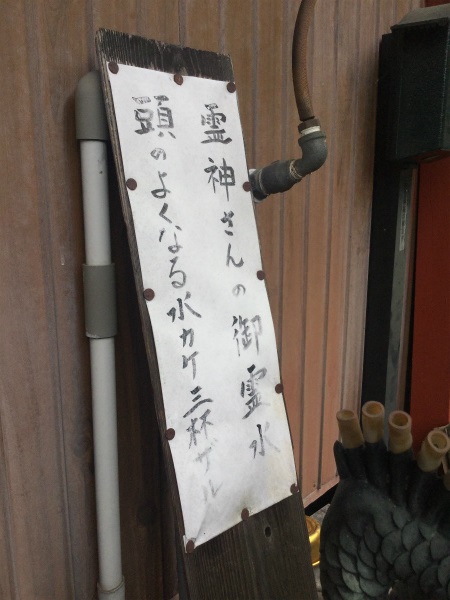 霊神さんの御霊水
頭のよくなる水カケ三杯ザル